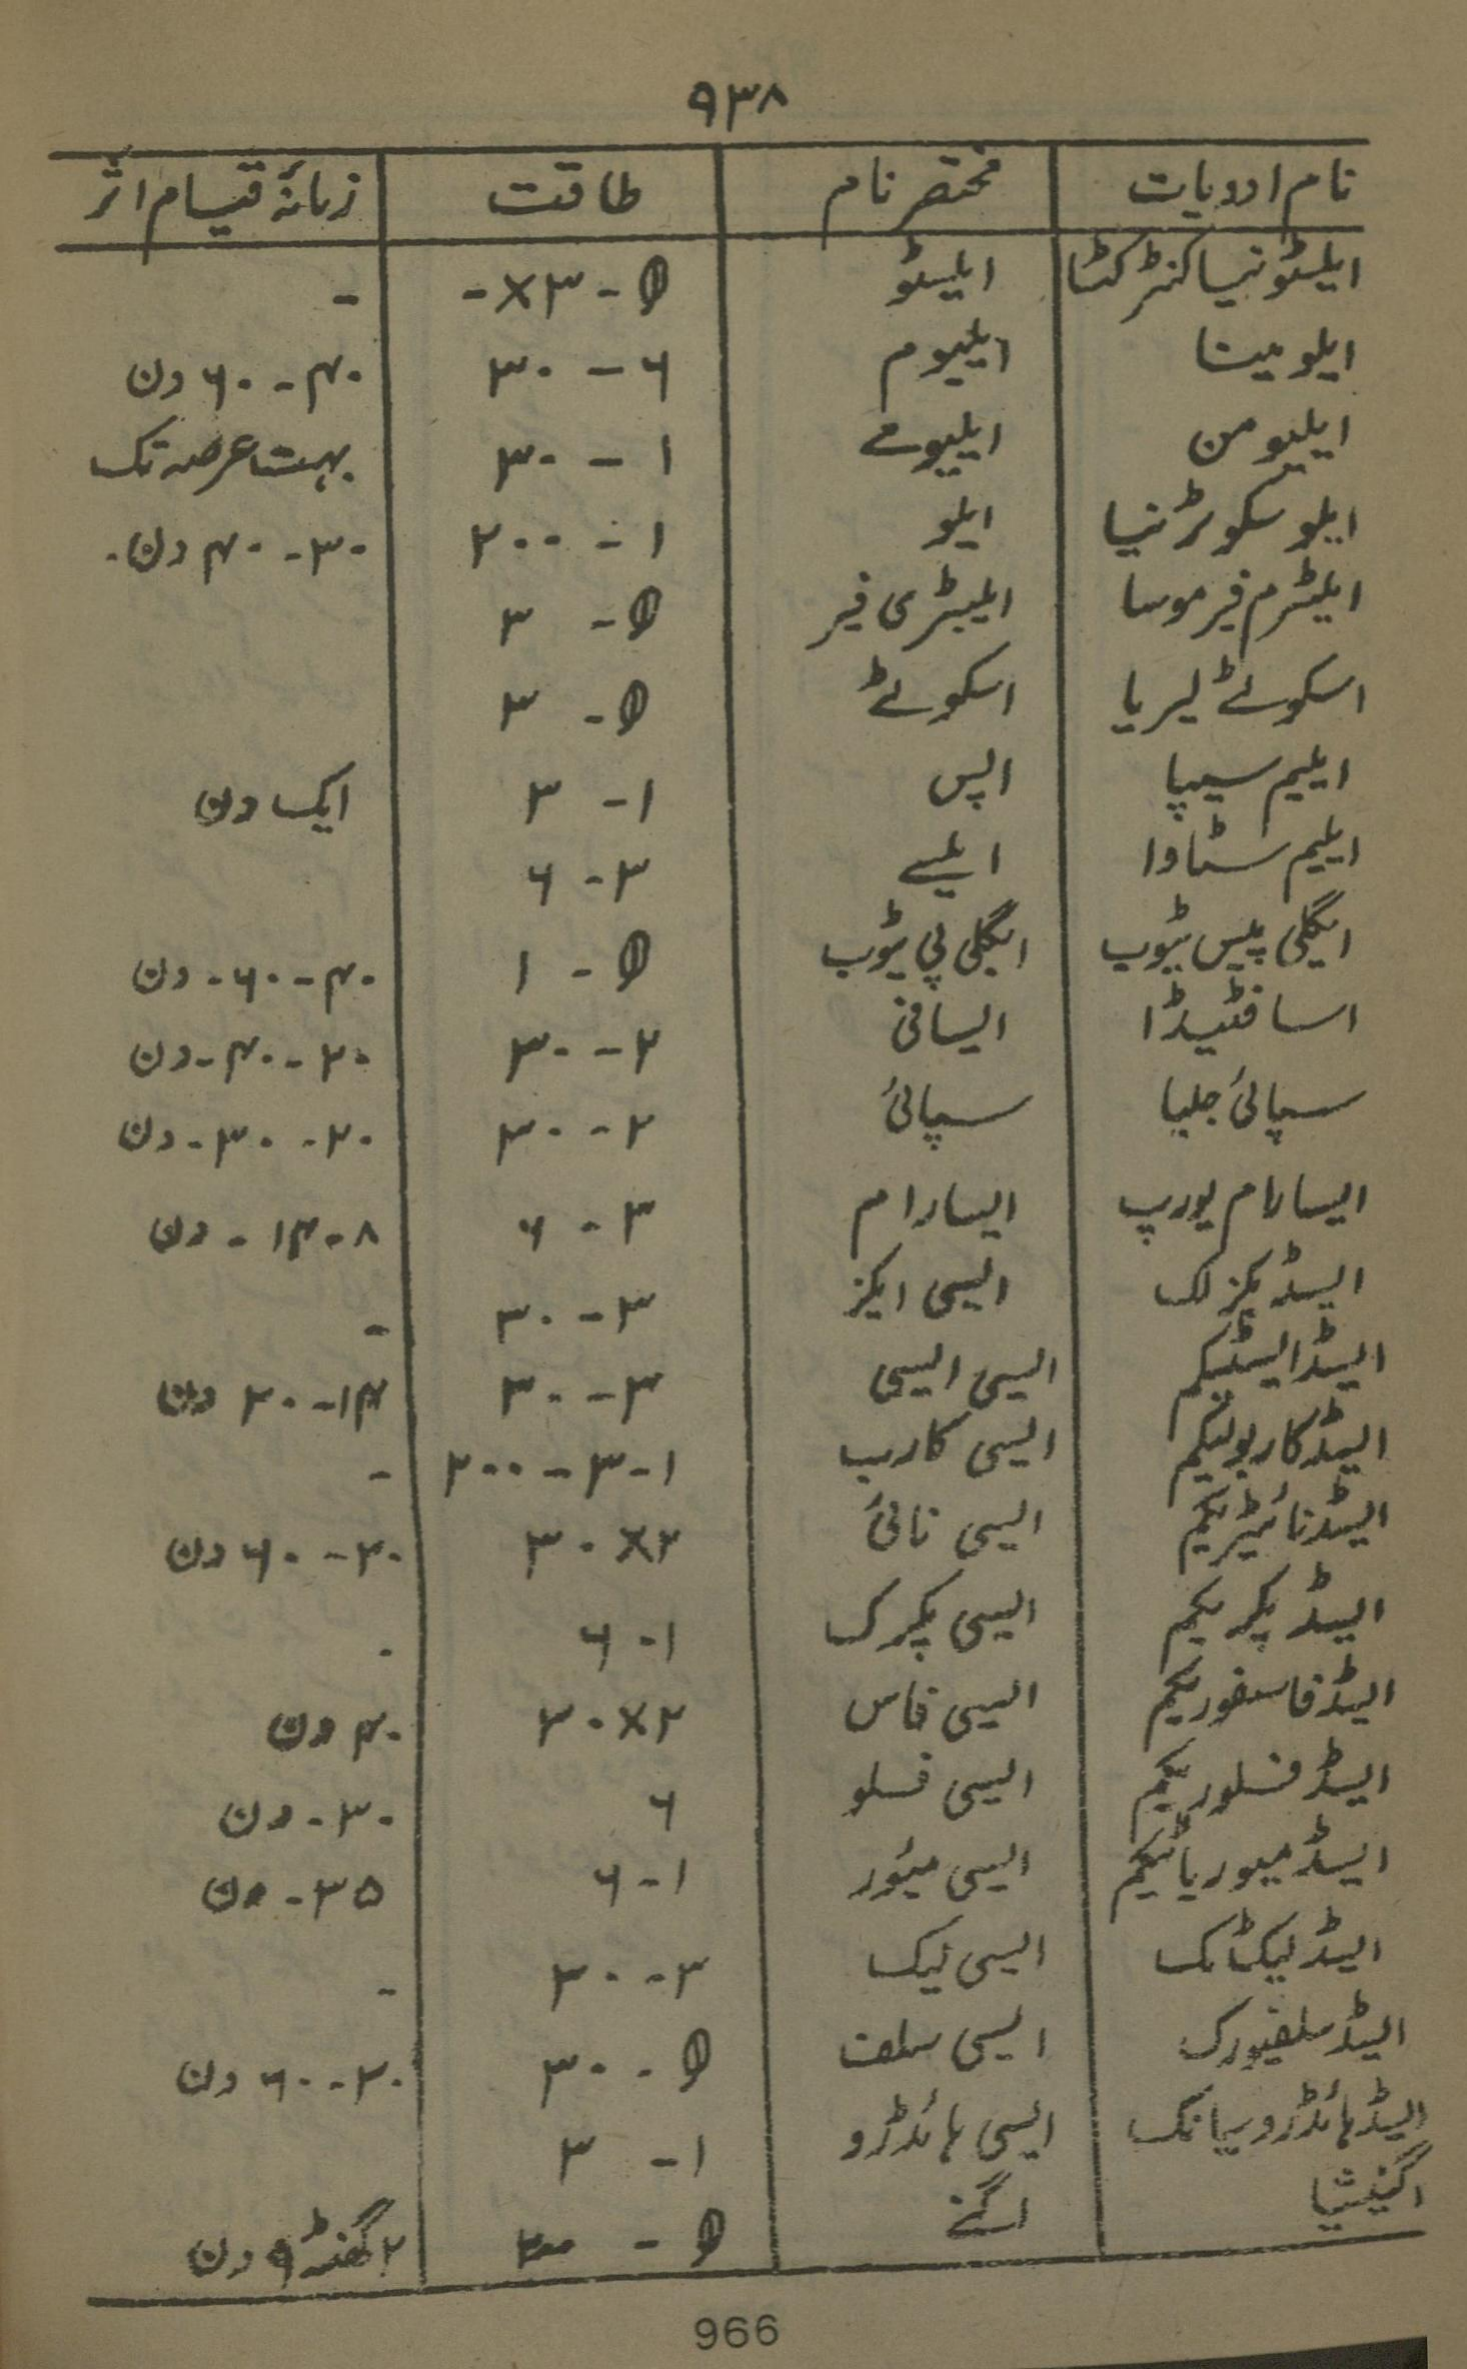 ۹۳۸
نام ادویات مختصر نام طاقت زمانۂ قیام اثر
ایلسٹونیا کنٹرکٹا ایلسٹو θ - ۳× - -
ایلومینا ایلیوم ۶ - ۳۰ ۴۰ - ۶۰ دن
ایلیومن ایلیومے ۱ - ۳۰ بہت عرصہ تک
ایلو سکوٹرنیا ایلو ۱ - ۲۰۰ ۳۰ - ۴۰ دن۔
ایلیٹرم فیرموسا ایلیٹری فیر θ - ۳
اسکولے لیریا اسکولے θ - ۳
ایلیم سیپا الپس ۱ - ۳ ایک دن
ایلیم سٹاوا ایلیے ۳ - ۶
ایگلی پلیس ٹیوب ایگلی پی ٹیوب θ - ۱ ۴۰ - ۶۰ - دن
اسا فٹیڈا ایسافی ۲ - ۳۰ ۲۰ - ۴۰ - دن
سپائی جلیا سپائی ۲ - ۳۰ ۲۰ - ۳۰ - دن
ایسارام یورپ ایسارام ۳ - ۶ ۸ - ۱۴ - دن
ایسڈ یگزلک ایسی ایگز ۳ - ۳۰ -
ایسڈ ایسٹیکم ایسی ایسی ۳ - ۳۰ ۱۴ - ۲۰ دن
ایسڈ کاربولیکم ایسی کارب ۱ - ۳ - ۲۰۰ -
ایسڈ نائیٹریکم ایسی نائی ۲× ۳۰ ۲۰ - ۶۰ دن
ایسڈ پکریکم ایسی پکرک ۱ - ۶ -
ایسڈ فاسفوریکم ایسی فاس ۲× ۳۰ ۴۰ دن
ایسڈ فسلوریکم ایسی فسلو ۶ ۳۰ - دن
ایسڈ میوریاٹیکم ایسی میٔور ۱ - ۶ ۳۵ - دن
ایسڈ لیکٹاٹک ایسی لیک ۳ - ۳۰ -
ایسڈ سلفیورک ایسی سلف θ - ۳۰ ۲۰ - ۶۰ دن
ایسڈ ہائڈروسیانک ایسی ہائڈرو ۱ - ۳
اگنیشیا اگنے θ - ۲۰۰ ۲ گھنٹہ ۹ دن
966